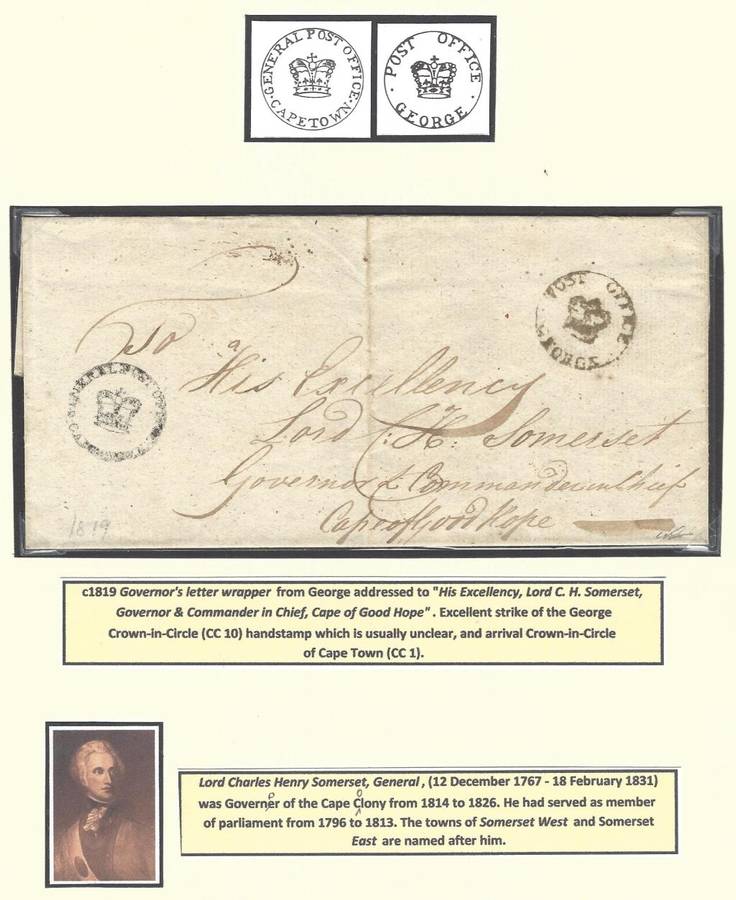 · GENERAL POST OFFICE ·
CAPETOWN
· POST OFFICE ·
GEORGE
POST OFFICE
GEORGE
To
His Excellency
Lord C: H: Somerset
Governor & Commander in Chief
Cape of Good Hope
GENERAL POST OFFICE
CAPETOWN
1819
c1819 Governor's letter wrapper from George addressed to "His Excellency, Lord C. H. Somerset,
Governor & Commander in Chief, Cape of Good Hope". Excellent strike of the George
Crown-in-Circle (CC 10) handstamp which is usually unclear, and arrival Crown-in-Circle
of Cape Town (CC 1).
Lord Charles Henry Somerset, General, (12 December 1767 - 18 February 1831)
was Governer of the Cape Clony from 1814 to 1826. He had served as member
of parliament from 1796 to 1813. The towns of Somerset West and Somerset
East are named after him.